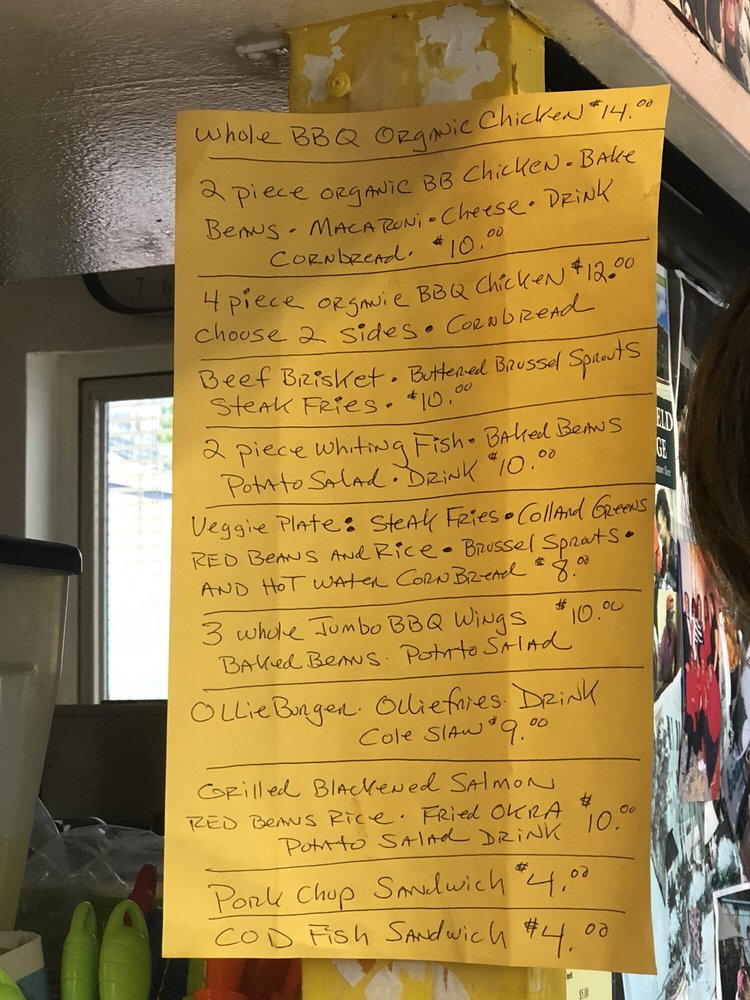 Whole BBQ Organic Chicken $14.00
2 piece organic BB Chicken · Bake
Beans · Macaroni · Cheese · Drink
Cornbread. $10.00
4 piece organic BBQ Chicken $12.00
Choose 2 Sides · Cornbread
Beef Brisket · Buttered Brussel Sprouts
Steak Fries · $10.00
2 piece Whiting Fish · Baked Beans
Potato Salad · Drink $10.00
Veggie Plate: Steak Fries · Collard Greens
Red Beans and Rice · Brussel Sprouts ·
and Hot Water CornBread $8.00
3 whole Jumbo BBQ Wings $10.00
Baked Beans. Potato Salad
OllieBurger. Olliefries. Drink
Cole Slaw $9.00
Grilled Blackened Salmon
Red Beans Rice · Fried Okra $10.00
Potato Salad Drink
Pork Chop Sandwich $4.00
COD Fish Sandwich $4.00